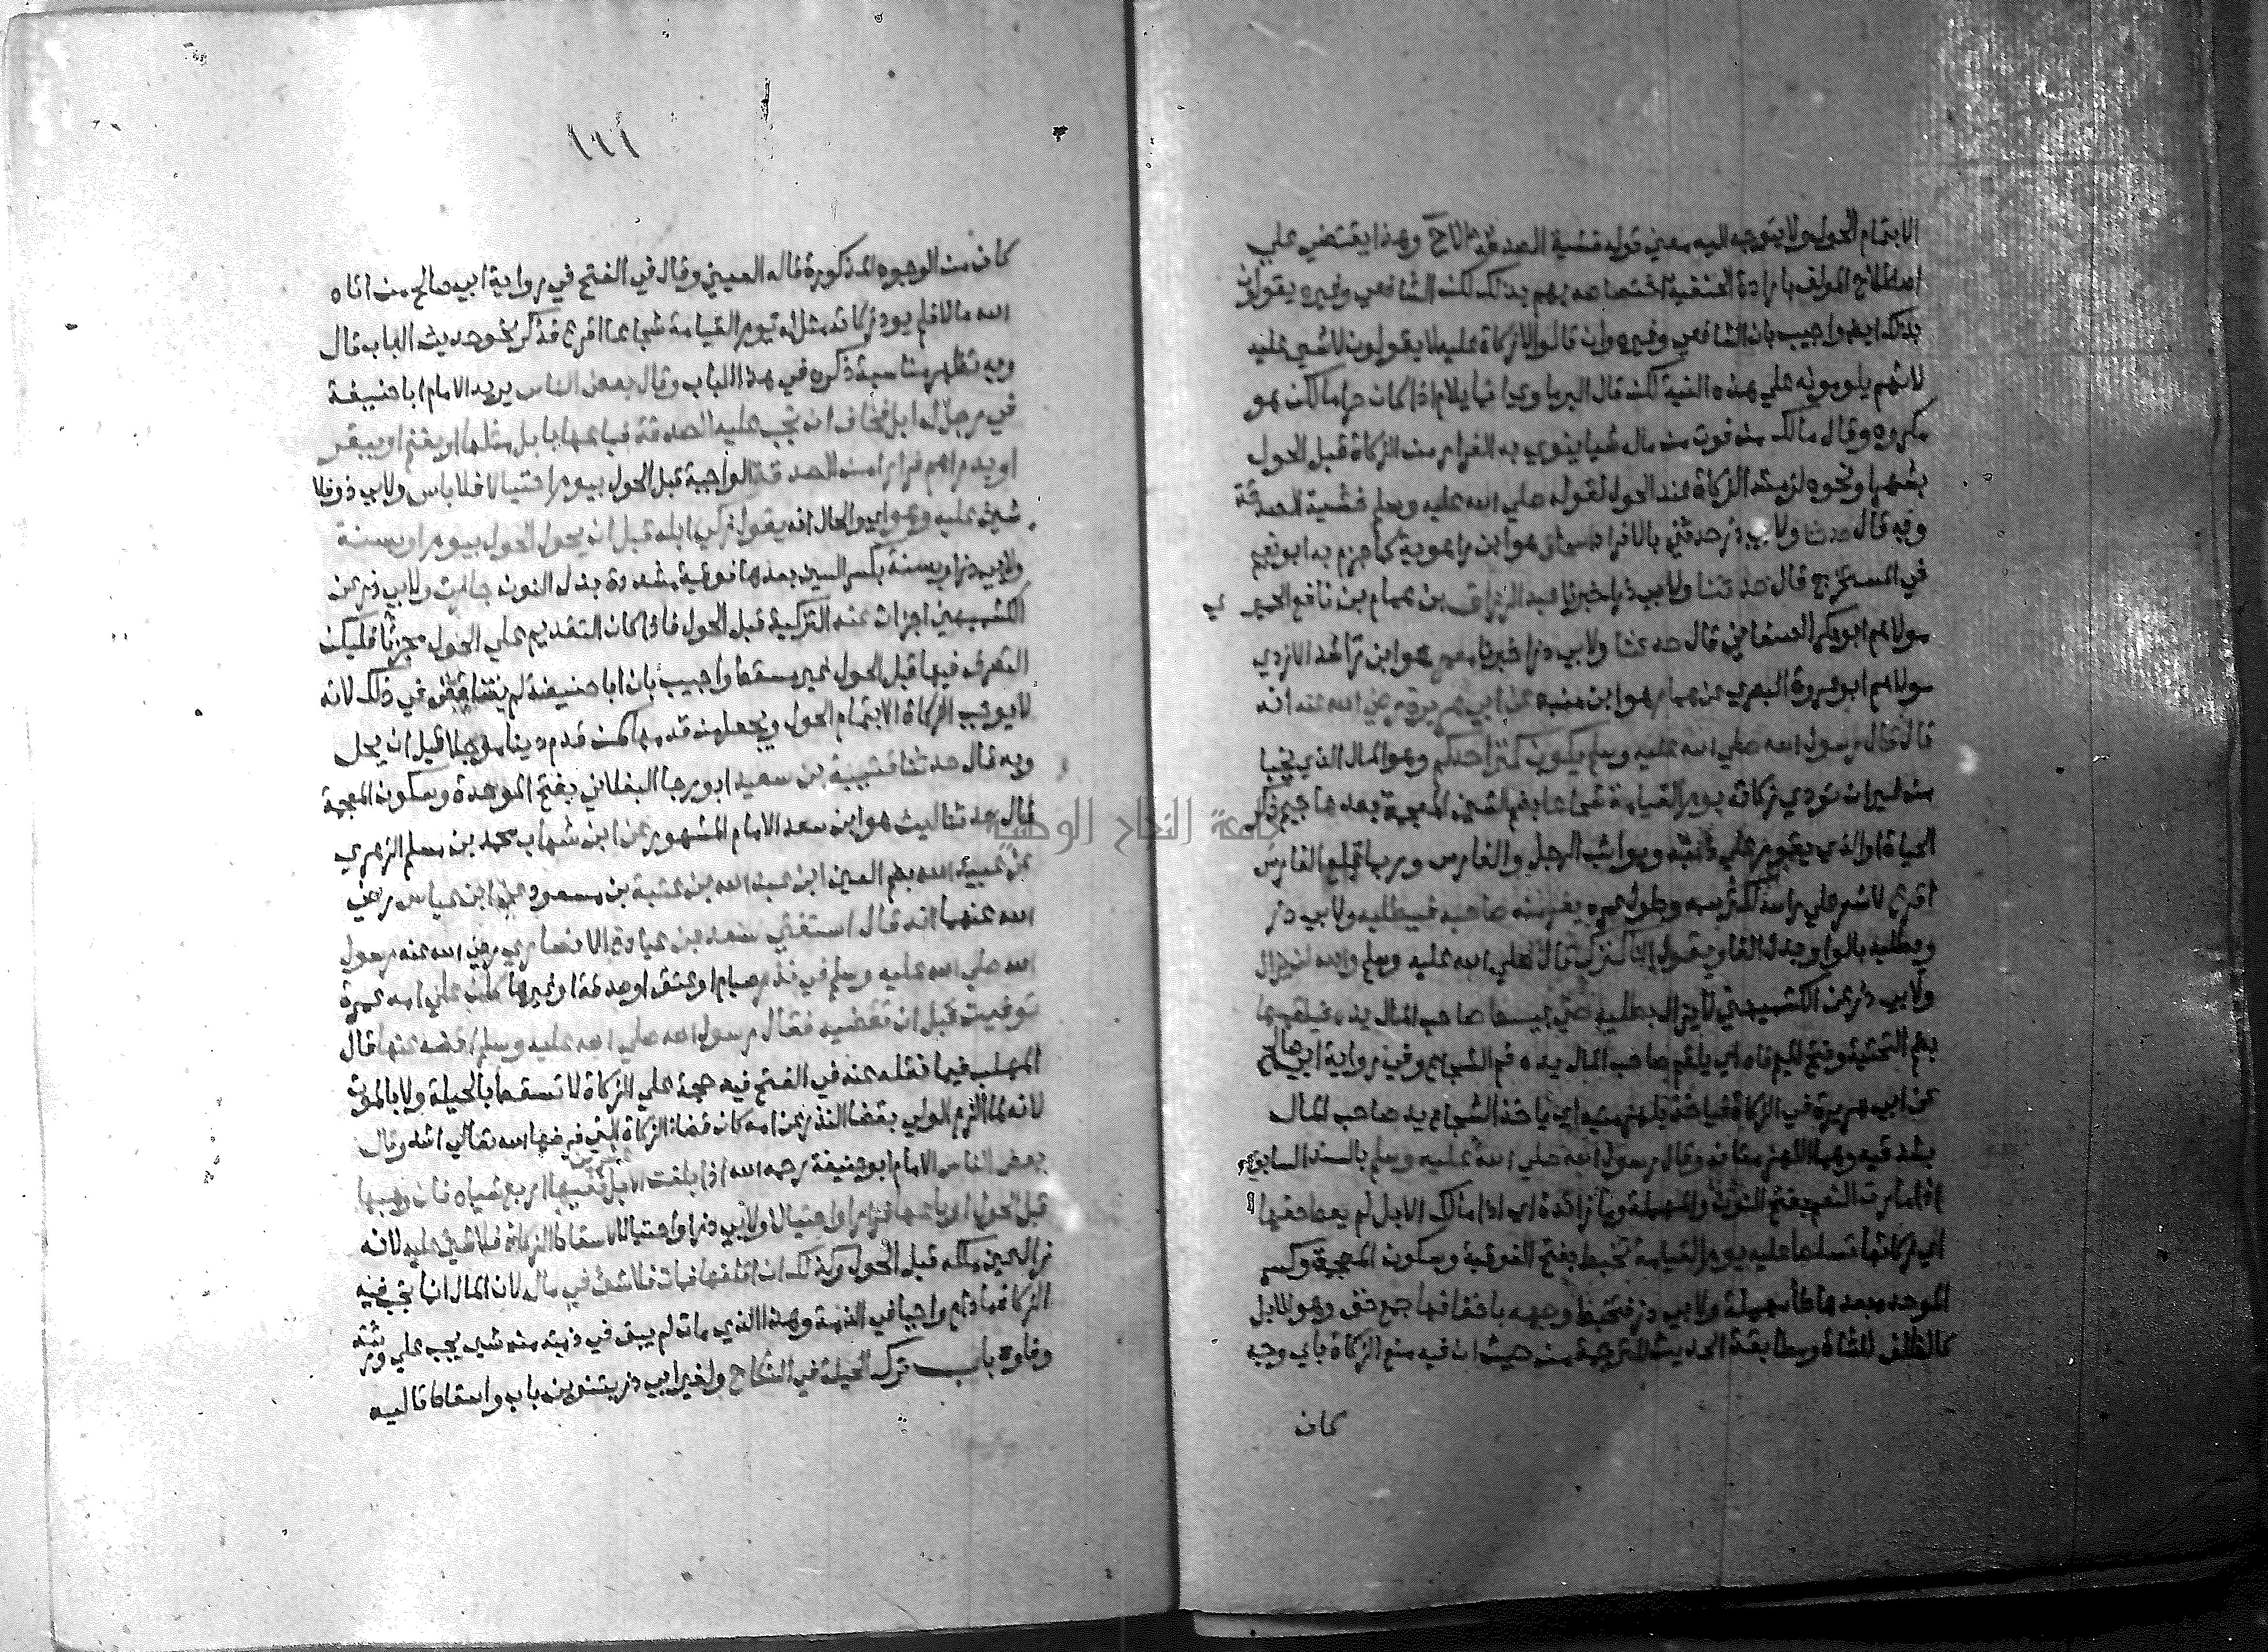 الا بتمام الحول ولا يتوجه اليه معني قوله خشية الصدقة الا ح وهذا يقتضي علي
اصطلاح المولف بارادة الحنفية اختصاصهم بذلك لكن الشافعي وغيره يقولون
بذلك ايضا واجيب بان الشافعي وغيره وان قالوا لا زكاة عليه لا يقولون لا شي عليه
لانهم يلومونه علي هذه النية لكن قال البرماوي انما يلام اذا كان حراما لكن هو
مكروه وقال مالك من فوت من ماله شيا ينوي به الفرار من الزكاة قبل الحول
بشهر او نحوه لزمته الزكاة عند الحول لقوله صلي الله عليه وسلم خشية الصدقة
وبه قال حدثنا ولابي ذر حدثني بالافراد اسحاق هو ابن راهوية كما جزم به ابو نعيم
في المستخرج قال حدثنا ولابي ذر اخبرنا عبد الرزاق بن همام بن نافع الحميري
مولاهم ابو بكر الصنعاني قال حدثنا ولابي ذر اخبرنا معمر هو ابن راشد الازدي
مولاهم ابو عروة البصري عن همام هو ابن منبه عن ابي هريرة رضي الله عنه انه
قال قال رسول الله صلي الله عليه وسلم يكون كنز احدكم وهو المال الذي يخبا
من غير ان تودي زكاته يوم القيامة شجاعا بضم الشين المعجمة بعدها جيم ذكر
الحياة او الذي يقوم علي ذنبه ويواثب الرجل والفارس وربما بلغ الفارس
اقرع لا شعر علي راسه لكثرة سمه وطول عمره يفر منه صاحبه فيطلبه ولابي ذر
ويطلبه بالواو بدل الفا ويقول انا كنزك قال صلي الله عليه وسلم والله لن يزال
ولابي ذر عن الكشميهني لا يزال يطلبه حتي يبسط صاحب المال يده فيلقمها
بضم التحتية وفتح الميم فاه اي يلقم صاحب المال يده فم الشجاع وفي رواية ابي صالح
عن ابي هريرة في الزكاة فياخذ بلهزمتيه اي ياخذ الشجاع يد صاحب المال
بشدقيه وهما اللهزمتان وقال رسول الله صلي الله عليه وسلم بالسند السابق
اذا ما رب النعم بفتح النون والمهملة وما زائدة اي اذا مالك الابل لم يعط حقها
اي زكاتها تسلط عليه يوم القيامة تخبط بفتح الفوقية وسكون المعجمة وكسر
الموحدة بعدها طا مهملة ولابي ذر فتخبط وجهه باخفافها جمع خف وهو للابل
كالظلف للشاة ومطابقة الحديث للترجمة من حيث ان فيه منع الزكاة باي وجه
كان
١١١
كان من الوجوه المذكورة قاله العيني وقال في الفتح في رواية ابي صالح من اتاه
الله مالا فلم يود زكاته مثل له يوم القيامة شجاعا اقرع فذكر نحو حديث الباب قال
وبه تظهر مناسبة ذكره في هذا الباب وقال بعض الناس يريد الامام ابا حنيفة
في رجل له ابل فخاف ان تجب عليه الصدقة فباعها بابل مثلها او بغنم او ببقر
او بدراهم فرارا من الصدقة الواجبة قبل الحول بيوم احتيالا فلا باس ولابي ذر فلا
شي عليه وهو اي والحال انه يقول ان زكي ابله قبل ان يحول الحول بيوم او بسنة
ولابي ذر او بستة بكسر السين بعدها فوقية مشددة بدل النون جازت ولابي ذر عن
الكشميهني اجزات عنه التزكية قبل الحول فاذا كان التقديم علي الحول مجزئا فليكن
التصرف فيها قبل الحول غير مسقط واجيب بان ابا حنيفة لم يتناقض في ذلك لانه
لا يوجب الزكاة الا بتمام الحول ويجعل من قدمها كمن قدم دينا موجلا قبل ان يحل
وبه قال حدثنا قتيبة بن سعيد ابو رجا البغلاني بفتح الموحدة وسكون المعجمة
قال حدثنا ليث هو ابن سعد الامام المشهور عن ابن شهاب محمد بن مسلم الزهري
عن عبيد الله بضم العين ابن عبد الله بن عتبة بن مسعود عن ابن عباس رضي
الله عنهما انه قال استفتي سعد بن عبادة الانصاري رضي الله عنه رسول
الله صلي الله عليه وسلم في نذر صيام او عتق او صدقة او غيرها كان علي امه عمرة
توفيت قبل ان تقضيه فقال رسول الله صلي الله عليه وسلم اقضه عنها قال
المهلب فيما نقله عنه في الفتح فيه حجة علي الزكاة لا تسقط بالحيلة ولا بالموت
لانه لما الزم الولي بقضا النذر عن امه كان قضاء الزكاة التي فرضها الله تعالي اشد وقال
بعض الناس الامام ابو حنيفة رحمه الله اذا بلغت الابل عشرين ففيها اربع شياه فان وهبها
قبل الحول او باعها فرارا او احتيالا ولابي ذر او احتيالا لاسقاط الزكاة فلا شي عليه لانه
زال عن ملكه قبل الحول وكذلك ان اتلفها فمات فلا شي في ماله لان المال انما تجب فيه
الزكاة ما دام واجبا في الذمة وهذا الذي مات لم يبق في ذمته منه شي يجب علي ورثته
وفاوه باب ترك الحيلة في النكاح ولغير ابي ذر بتنوين باب واسقاط تاليه
جامعة النجاح الوطنية